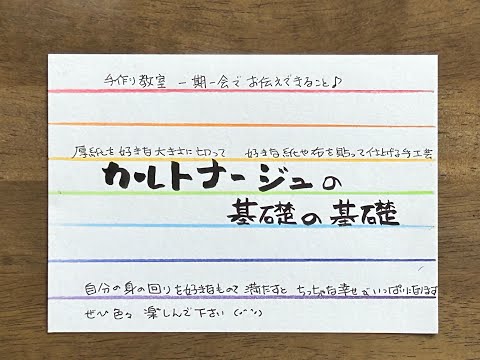 手作り教室 一期一会で お伝えできること♪
厚紙を好きな大きさに切って 好きな紙や布を貼って仕上げる手工芸
カルトナージュの
基礎の基礎
自分の身の回りを好きなもので 満たすと ちっちゃな幸せがいっぱいになります
ぜひ色々 楽しんで下さい (*ˊᵕˋ*)